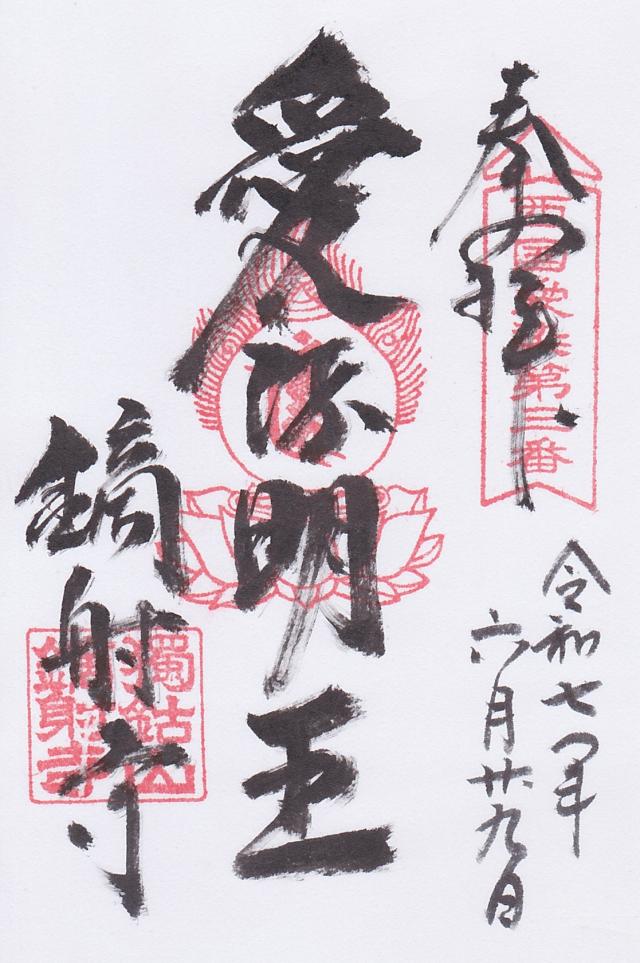 奉拝
西国愛染第三番
令和七年
六月廿九日
愛染明王
鏑射寺
獨鈷山
鏑射寺